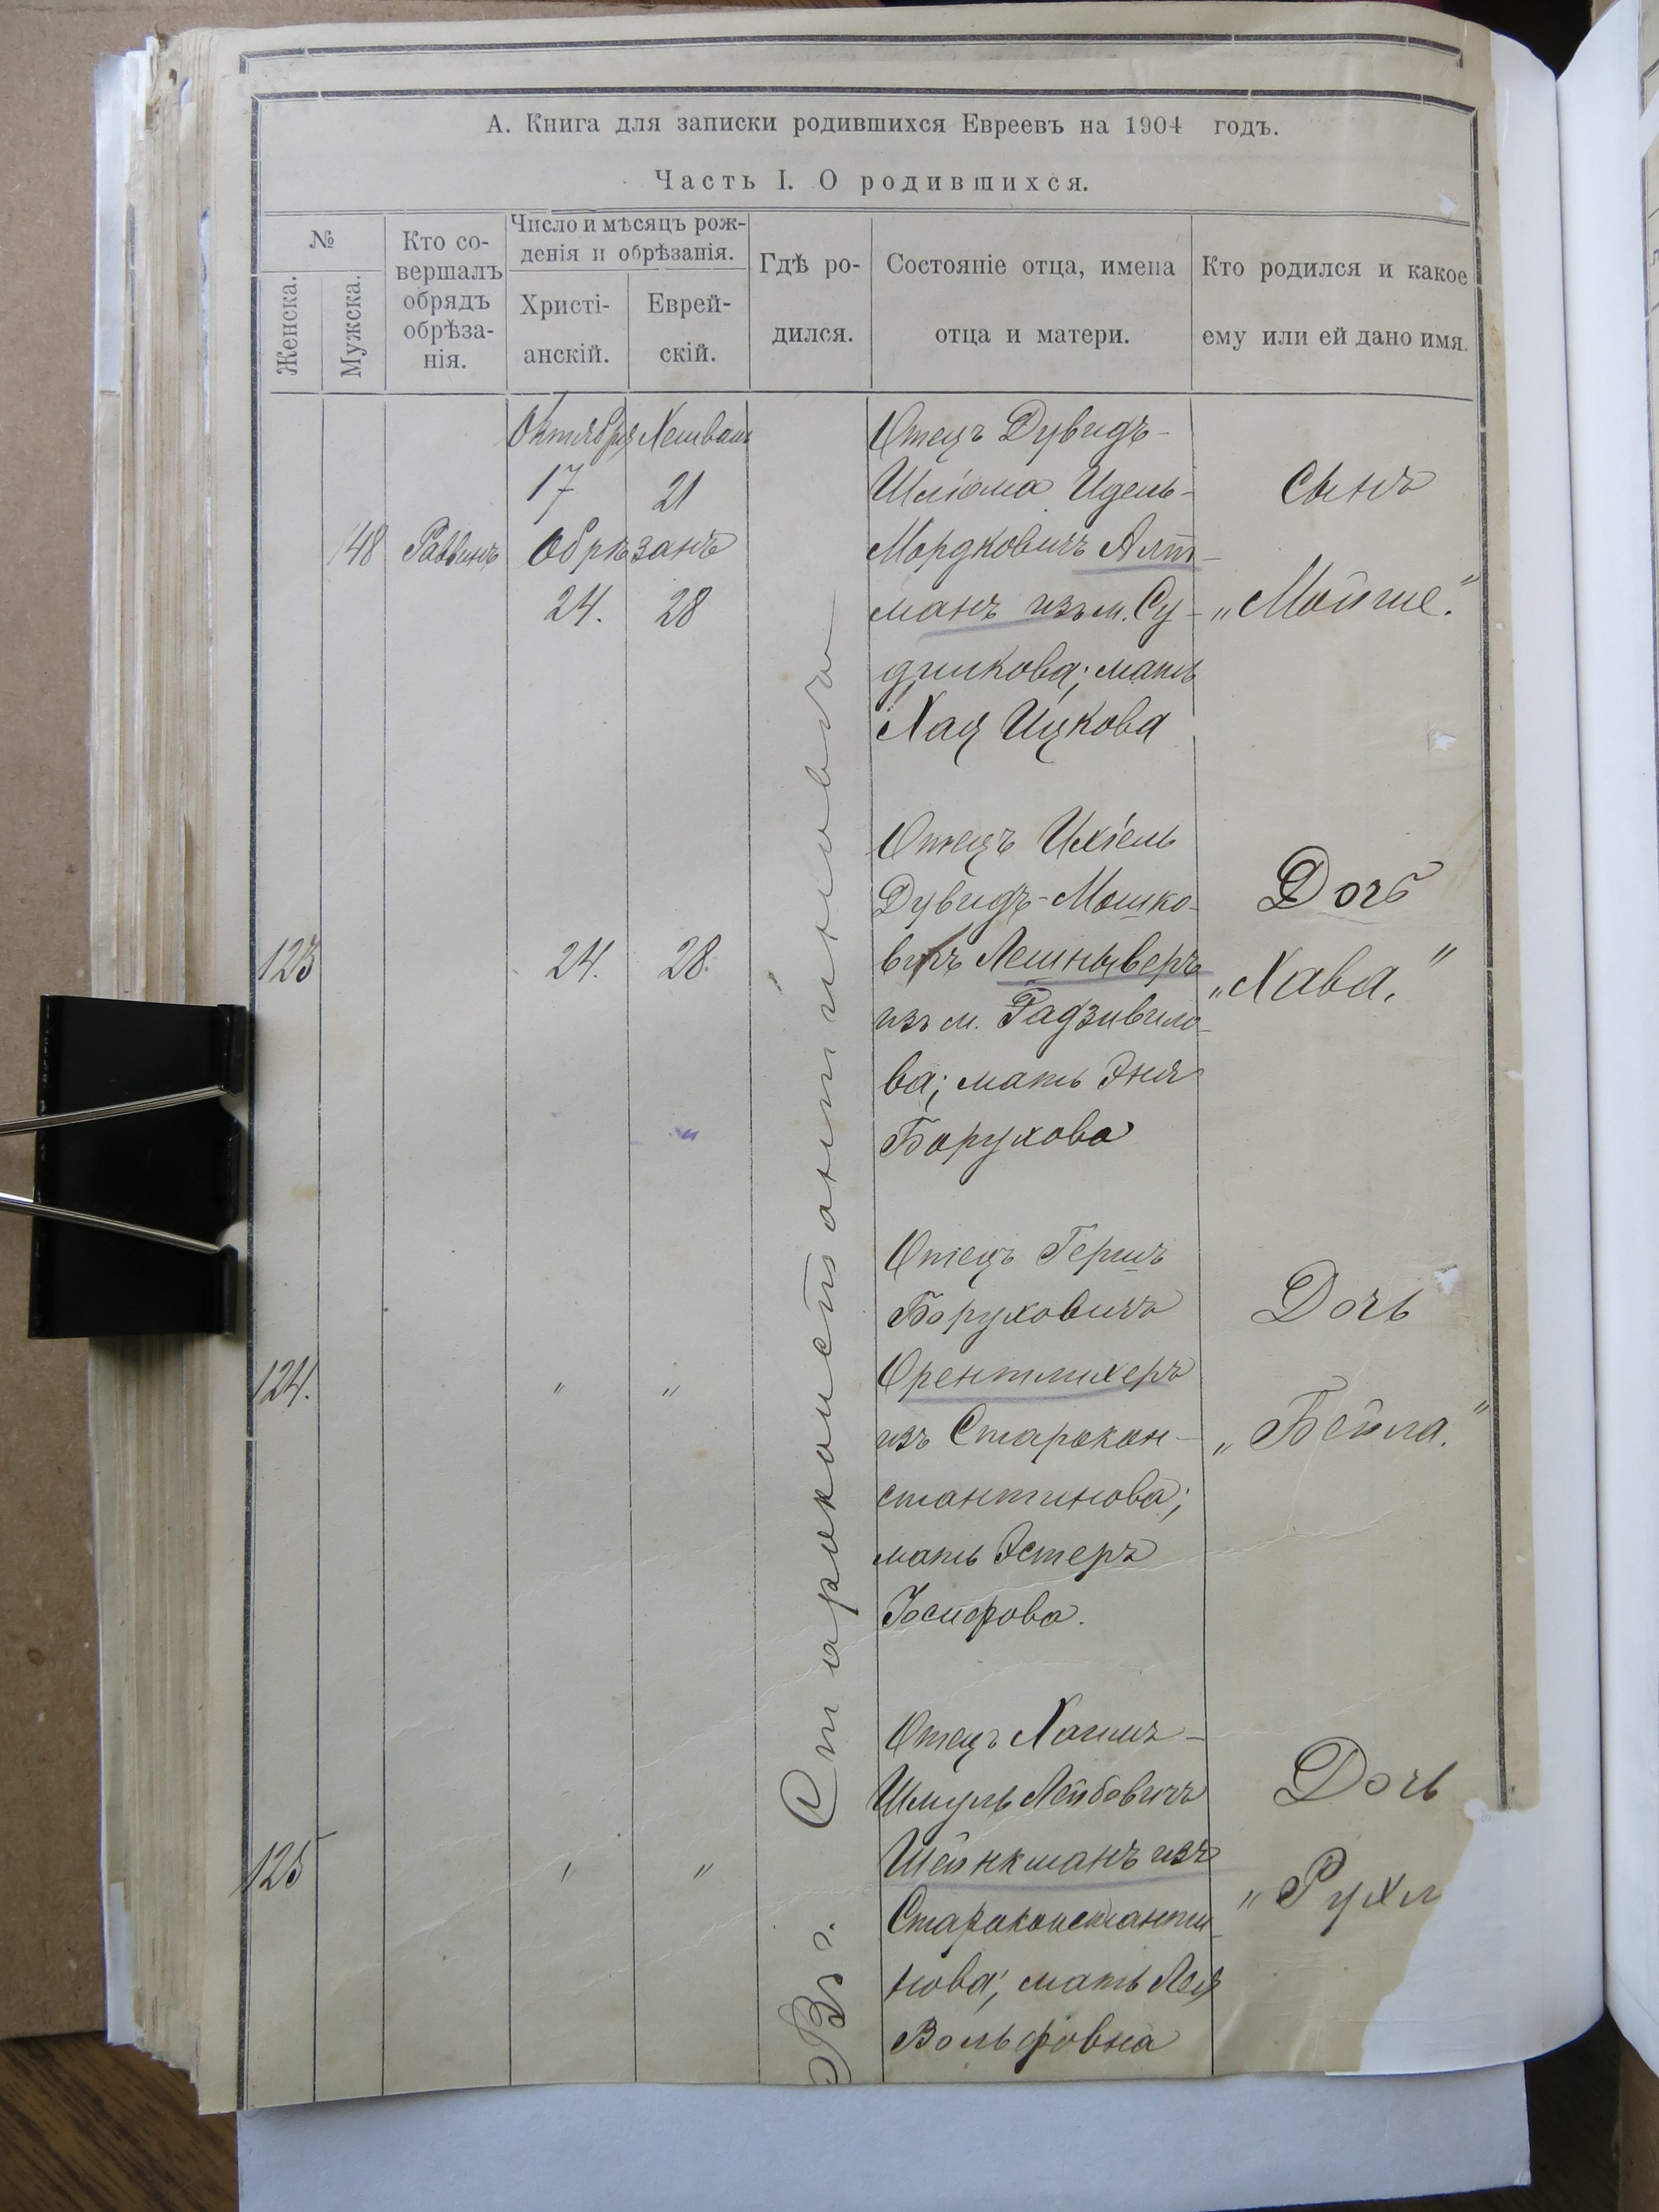 А. Книга для записки родившихся Евреевъ на 1904 годъ.
Часть I. О родившихся.
№
Женска.
Мужска.
Кто со-
вершалъ
обрядъ
обрѣза-
нія.
Число и мѣсяцъ рож-
денія и обрѣзанія.
Христі-
анскій.
Еврей-
скій.
Гдѣ ро-
дился.
Состояніе отца, имена
отца и матери.
Кто родился и какое
ему или ей дано имя.
Въ г. Староконстантиновѣ
148
Раввинъ
Октября Хешвань
17 21
Обрѣзанъ
24. 28
Отецъ Дувидъ-
Шліома Идель-
Мордковичъ Альт-
манъ изъ м. Су-
дилкова; мать
Хая Ицкова
Сынъ
„Мойше."
123
24. 28.
Отецъ Ихіель
Дувидъ-Мошко-
вичъ
изъ м. Радзивило-
ва; мать Эня
Борухова
Дочь
„Хава."
124.
" "
Отецъ Гершъ
Боруховичъ
Орентлихеръ
изъ Старокон-
стантинова;
мать Эстеръ
Іосифова.
Дочь
„Бейла."
125
" "
Отецъ Хаимъ-
Шмуль Лейбовичъ
Шейнкманъ изъ
Староконстанти
нова; мать Лея
Вольфовна
Дочь
„Рухл